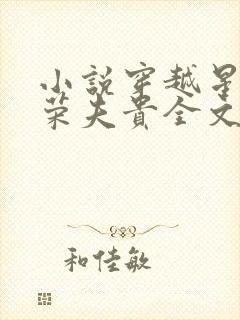 小説穿越星
荣夫貴全文
和佳敏